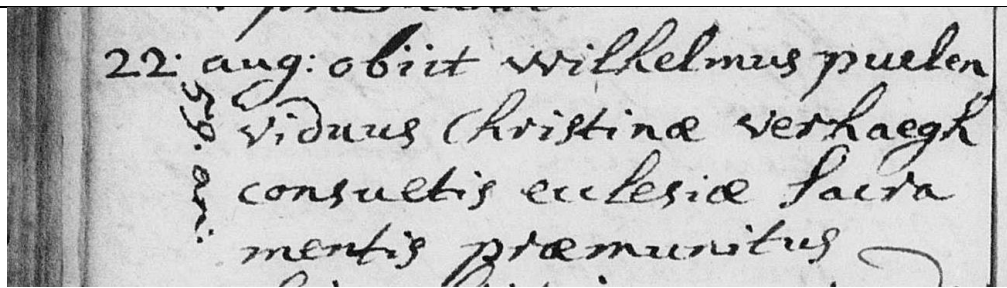 22: aug: obiit wilhelmus puelen
viduus Christinæ verhaegh
consuetis ecclesiæ sacra
mentis præmunitus